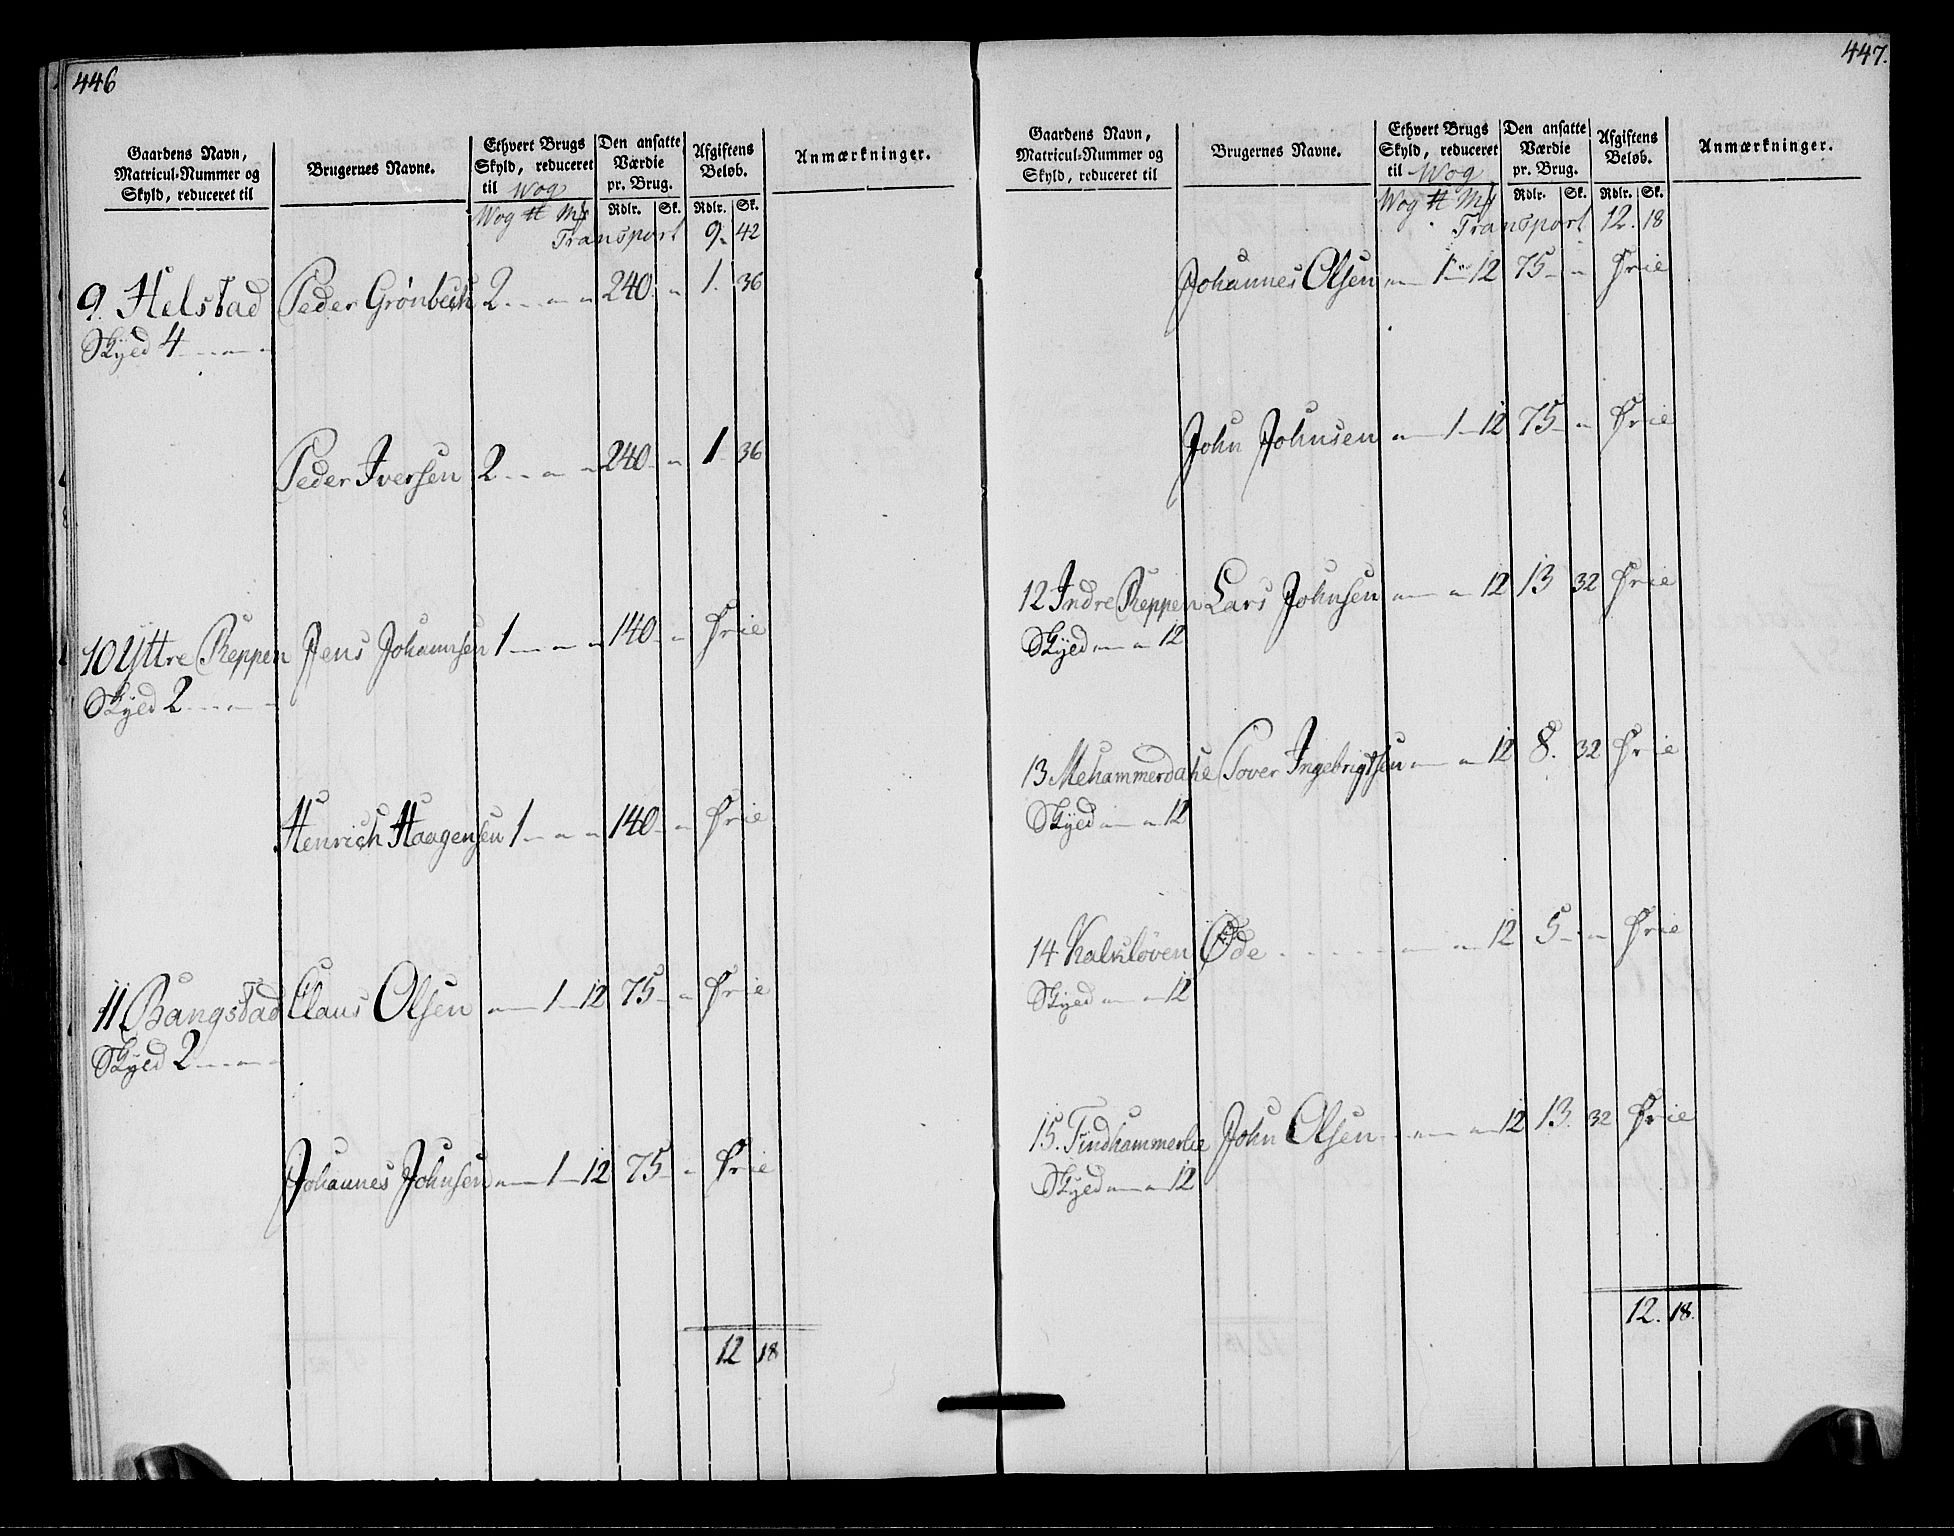 446
Gaardens Navn, Matricul-Nummer og Skyld, reduceret til | Brugernes Navne. | Ethvert Brugs Skyld, reduceret til Wog | Den ansatte Værdie pr. Brug. | Afgiftens Beløb. | Anmærkninger.
Wog ℔ Mk | Rdlr. | Sk. | Rdlr. | Sk.
Transport 9. 42
9. Helstad Peder Grønbech 2 - - - 240 - 1. 36
Skyed 4 - - -
Peder Iversen 2 - - - 240 - 1 36
10 Yttre Reppen Jens Johannsen 1 - - - 140 - Frie
Skyed 2 - - -
Henrich Haagensen 1 - - - 140 - Frie
11 Bangstad Claus Olsen - 1 - 12 75 - Frie
Skyed 2 - - -
Johannes Johnsen - 1 - 12 75 - Frie
12 18
447.
Gaardens Navn, Matricul-Nummer og Skyld, reduceret til | Brugernes Navne. | Ethvert Brugs Skyld, reduceret til Wog | Den ansatte Værdie pr. Brug. | Afgiftens Beløb. | Anmærkninger.
Wog ℔ Mk | Rdlr. | Sk. | Rdlr. | Sk.
Transport 12. 18
Johannes Olsen - 1 - 12 75 - Frie
John Johnsen - 1 - 12 75 - Frie
12 Indre Reppen Lars Johnsen - - 12 13 32 Frie
Skyed - - 12
13 Mehammerdahl Tover Ingebrigtsen - - 12 8. 32 Frie
Skyed - - 12
14 Kalkløven Øde - - 12 5 - Frie
Skyed - - 12
15. Tindhammerlie John Olsen - - 12 13. 32 Frie
Skyed - - 12
12. 18.